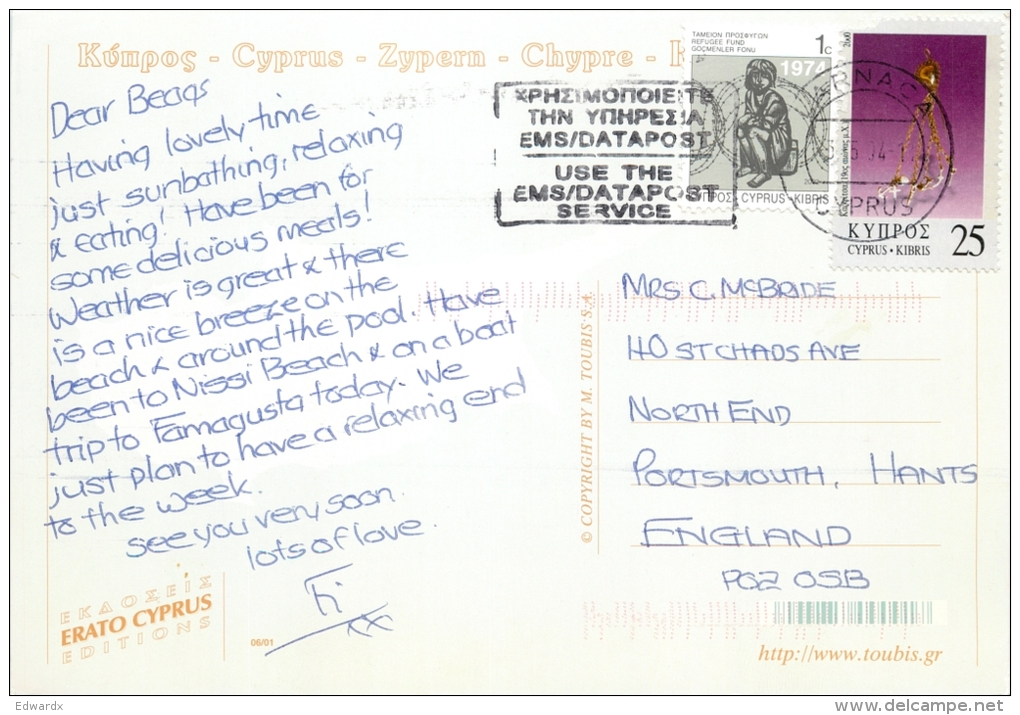 Κύπρος - Cyprus - Zypern - Chypre - К
Dear Beags
Having lovely time
just sunbathing, relaxing
& eating! Have been for
some delicious meals!
Weather is great & there
is a nice breeze on the
beach & around the pool. Have
been to Nissi Beach & on a boat
trip to Famagusta today. We
just plan to have a relaxing end
to the week.
see you very soon.
lots of love.
Fi
xx
ΕΚΔΟΣΕΙΣ
ERATO CYPRUS
EDITIONS
06/01
© COPYRIGHT BY M. TOUBIS S.A.
ΧΡΗΣΙΜΟΠΟΙΕΙΤΕ
ΤΗΝ ΥΠΗΡΕΣΙΑ
EMS/DATAPOST
USE THE
EMS/DATAPOST
SERVICE
ΤΑΜΕΙΟΝ ΠΡΟΣΦΥΓΩΝ
REFUGEE FUND
GÖÇMENLER FONU
1c
1974
ΚΥΠΡΟΣ - CYPRUS - KIBRIS
LARNACA
CYPRUS
ΚΥΠΡΟΣ
CYPRUS • KIBRIS
25
MRS C. MCBRIDE
40 ST CHADS AVE
NORTH END
PORTSMOUTH, HANTS
ENGLAND
PO2 0SB
http://www.toubis.gr
Edwardx
www.delcampe.net